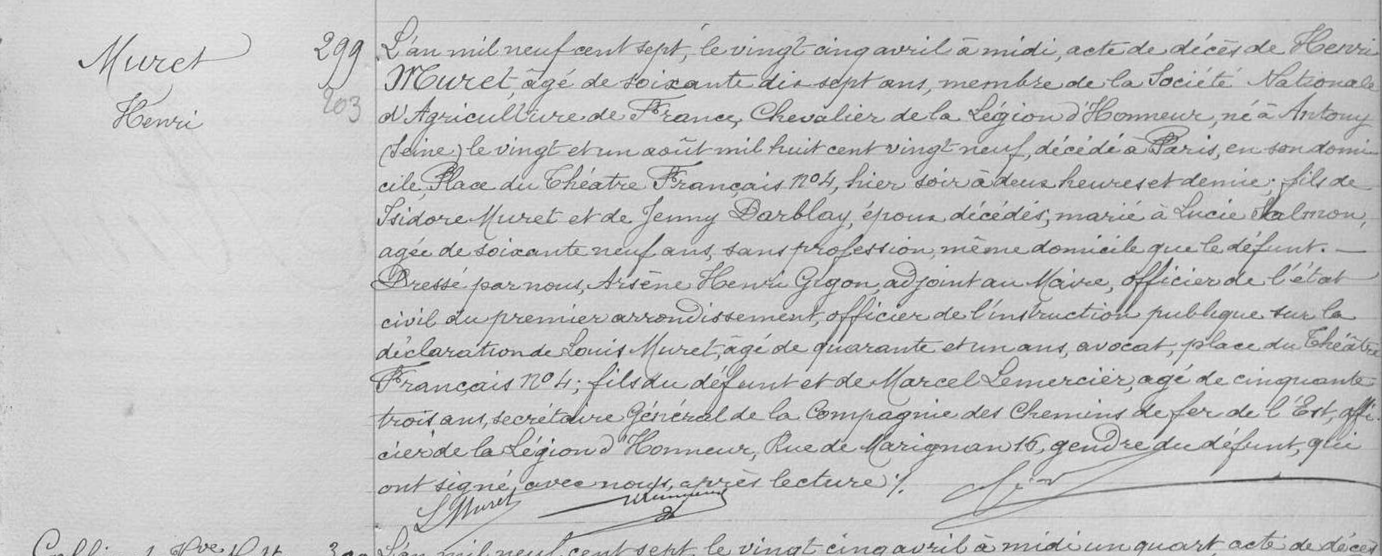 Muret
Henri
299
203
L'an mil neuf cent sept, le vingt cinq avril à midi, acte de décès de Henri
Muret, âgé de soixante dix sept ans, membre de la Société Nationale
d'Agriculture de France, Chevalier de la Légion d'Honneur, né à Antony
(Seine) le vingt et un août mil huit cent vingt neuf, décédé à Paris, en son domi
cile, Place du Théatre Français n°4, hier soir à deux heures et demie; fils de
Isidore Muret et de Jenny Darblay, époux décédés, marié à Lucie Salmon,
agée de soixante neuf ans, sans profession, même domicile que le défunt. —
Dressé par nous, Arsène Henri Gigon, adjoint au Maire, officier de l'état
civil du premier arrondissement, officier de l'instruction publique sur la
déclaration de Louis Muret, âgé de quarante et un ans, avocat, place du Théâtre
Français n°4; fils du défunt et de Marcel Lemercier, agé de cinquante
trois ans, secrétaire Général de la Compagnie des Chemins de fer de l'Est, offi-
cier de la Légion d'Honneur, Rue de Marignan 16, gendre du défunt, qui
ont signé, avec nous, après lecture ./.
L Muret
L'an mil neuf cent sept, le vingt cinq avril à midi un quart acte de décès